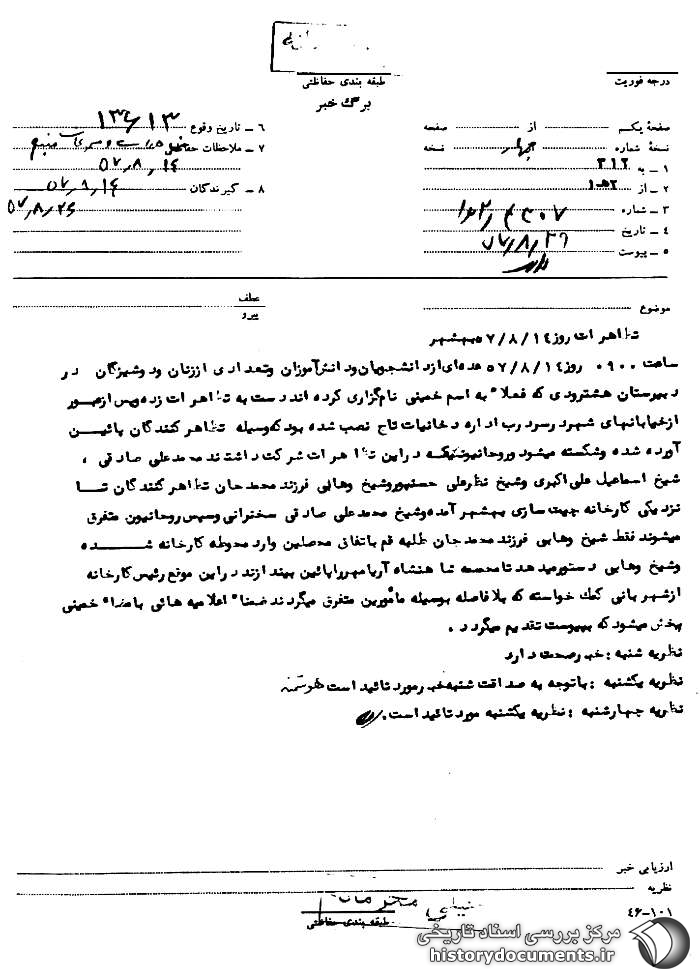 طبقه بندی حفاظتی
درجه فوریت
برگ خبر
صفحهٔ یکم از صفحه
نسخهٔ شماره چهار نسخه
۱ ـ به ۳۱۲
۲ ـ از ۲ه‍۱
۳ ـ شماره
۴ ـ تاریخ ۵۷/۸/۲۶
۵ ـ پیوست دارد
۶ ـ تاریخ وقوع
۷ ـ ملاحظات حفاظتی
۵۷/۸/۱۴
۸ ـ گیرندگان ۵۷/۸/۱۴
۵۷/۸/۲۶
موضوع
عطف
پیرو
تظاهرات روز ۵۷/۸/۱۴ بهشهر
ساعت ۰۹۰۰ روز ۵۷/۸/۱۴ عده‌ای از دانشجویان و دانش‌آموزان و تعدادی از زنان و دوشیزگان در
دبیرستان هشترودی که فعلاً به اسم خمینی نام‌گزاری کرده‌اند دست به تظاهرات زده و پس از عبور
از خیابانهای شهر در سر درب اداره دخانیات تاج نصب شده بود که وسیله تظاهرکنندگان پائین
آورده شده و شکسته میشود و روحانیونیکه در این تظاهرات شرکت داشتند محمد علی صادقی ،
شیخ اسماعیل علی‌اکبری و شیخ نظرعلی حسنپور و شیخ وهابی فرزند محمد جان تظاهرکنندگان تا
نزدیکی کارخانه چیت سازی بهشهر آمده و شیخ محمد علی صادقی سخنرانی و سپس روحانیون متفرق
میشوند فقط شیخ وهابی فرزند محمد جان طلبه قم باتفاق محصلین وارد محوطه کارخانه شده
و شیخ وهابی دستور میدهد تا مجسمه شاهنشاه آریامهر را پائین بیندازند در این موقع رئیس کارخانه
از شهربانی کمک خواسته که بلافاصله بوسیله مأمورین متفرق میگردند ضمناً اعلامیه هائی بامضاء خمینی
پخش میشود که بپیوست تقدیم میگردد .
نظریه شنبه : خبر صحت دارد
نظریه یکشنبه : با توجه به صداقت شنبه خبر مورد تائید است هوشمند
نظریه چهارشنبه : نظریه یکشنبه مورد تائید است.
ارزیابی خبر
نظریه
خیلی محرمانه
طبقه بندی حفاظتی
۴۶-۱۰۱
مرکز بررسی اسناد تاریخی
historydocuments.ir